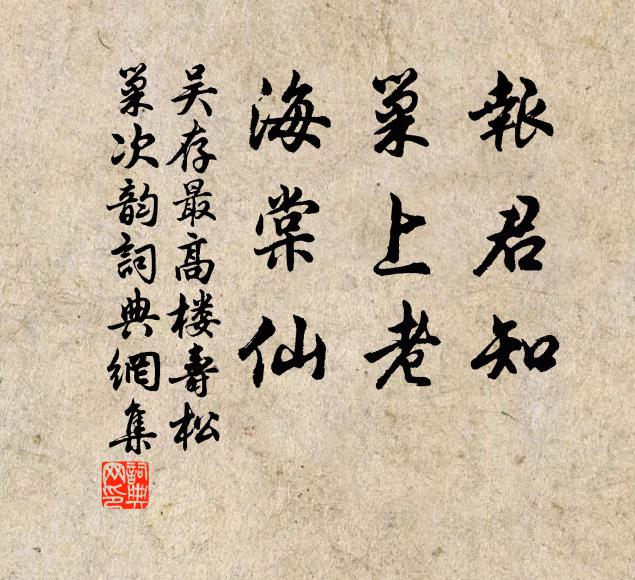 報君知
巢上老
海棠仙
吴存最高楼壽松
巢次韵詞典網集
詞典网印